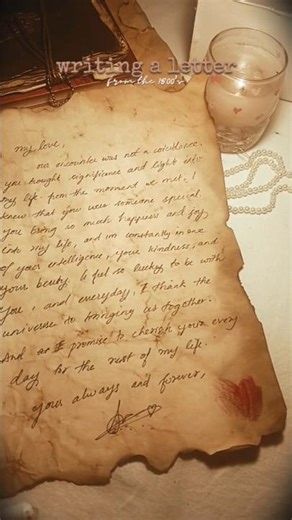 writing a letter
from the 1800's
My love,
our encounter was not a coincidence.
you brought significance and light into
my life. from the moment we met, I
knew that you were someone special.
You bring so much happiness and joy
into my life, and im constantly in awe
of your intelligence, your kindness, and
your beauty. I feel so lucky to be with
you, and everyday, I thank the
universe to bringing us together.
And I promise to cherish your every
day for the rest of my life.
your always and forever,